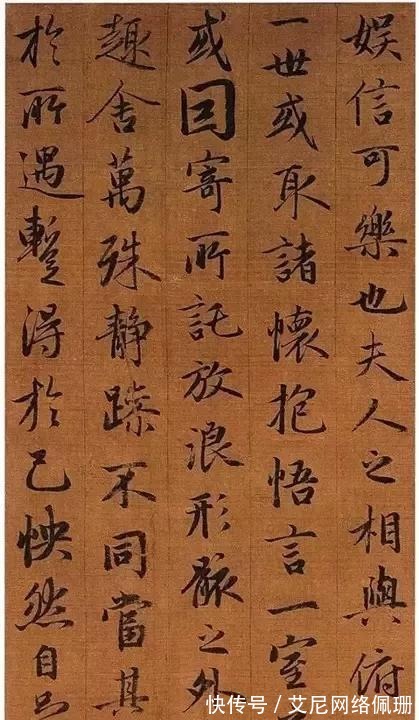 娛信可樂也夫人之相與俯
一世或取諸懷抱悟言一室
或因寄所託放浪形骸之外
趣舍萬殊静躁不同當其
於所遇蹔得於己怏然自
快传号 / 艾尼网络佩珊